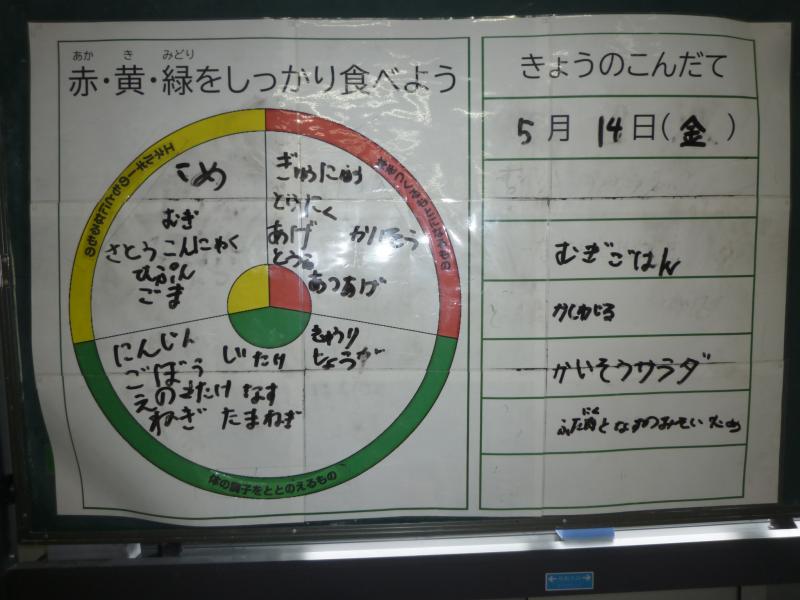 あか き みどり
赤・黄・緑をしっかり食べよう
エネルギーのもとになるもの
こめ
むぎ
さとう こんにゃく
でぷん
ごま
ぎゅうにゅう
とりにく
あげ かいそう
とうふ
あつあげ
にんじん
ごぼう
えのきたけ なす
ねぎ たまねぎ
しいたけ
きゅうり
しょうが
体の調子をととのえるもの
きょうのこんだて
5月 14日(金)
むぎごはん
かしわじる
かいそうサラダ
ぶた肉となすのみそいため